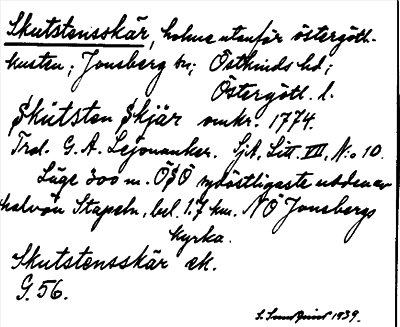 Skutstensskär, holme utanför östergötl.
kusten; Jonsberg sn; Östkinds hd;
Östergötl. l.
Skutsten Skjär omkr. 1774.
Trol. G. A. Lejonanker. SjA, Litt VII, N:o 10.
Läge 300 m. ÖSÖ sydöstligaste udden av
halvön Stapeln, bel. 1.7 km. NÖ Jonsbergs
kyrka.
Skutstensskär ek.
G. 56.
1939.